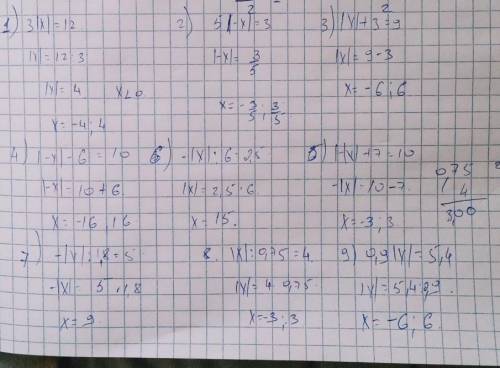 1) 3|x|=12 2) 5|-x|=3 3) |x|+3=9
|x|=12:3 |-x|=3/5 |x|=9-3
|x|=4 x<0 x=-3/5;3/5 x=-6;6
x=-4;4
4) |-x|-6=10 6) -|x|:6=2,5 5) |-x|+7=10 0,75
|-x|=10+6 |x|=2,5·6 -|x|=10-7 4
x=-16,16 x=15. x=-3;3 3,00
7) -|x|:1,8=5 8. |x|:0,75=4. 9) 0,9|x|=5,4
-|x|=5·1,8 |x|=4·0,75 |x|=5,4:0,9.
x=9 x=-3;3 x=-6;6